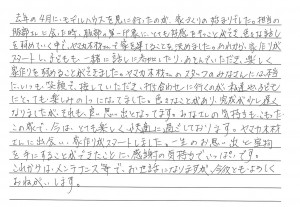 去年の4月に、モデルハウスを見に行ったのが、家づくりの始まりでした。担当の
服部さんに会った時、服部の第一印象に、とても好感をもつことができ、色々な話し
を進めていく中で、ヤマカ木材さんで家を建てることを決めました。その方から、家作りが
スタートし、子どもも一緒に話しに参加したり、おえかきしていただき、楽しく
家作りを進めることができました。ヤマカ木材さんのスタッフのみなさんには、本当
に、いつも笑顔で、接していただき、打合わせに行くのが、私達や子どもに
とっても、楽しみの1つになってました。色々なことがあり、完成が少し遅く
なりましたが、それも、良い思い出となってます。みなさんの気持ちもこもった
この家で、今は、とても楽しく、快適に過ごしております。ヤマカ木材
さんに出会い、家作りがスタートしました。一生のお思い出と宝物
を手にすることができたことに、感謝の気持ちでいっぱいです。
これからは、メンテナンス等で、お世話になりますが、今後ともよろしく
おねがいします。